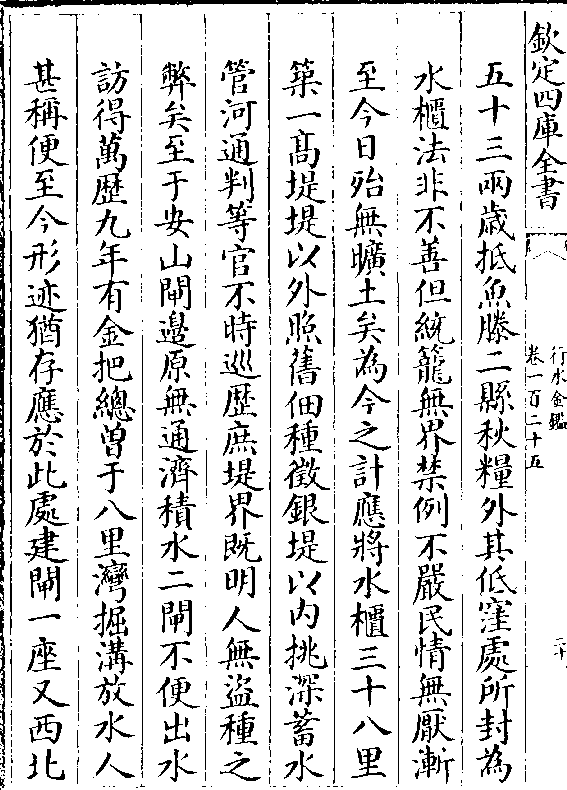 欽定四庫全書
行水金鑑
卷一百二十五
二十
五十三兩歳抵魚滕二縣秋糧外其低窪處所封為
水櫃法非不善但統籠無界禁例不嚴民情無厭漸
至今日殆無曠土矣為今之計應將水櫃三十八里
築一髙堤堤以外照舊佃種徵銀堤以内挑深蓄水
管河通判等官不時巡歴庶堤界既明人無盜種之
弊矣至于安山閘邉原無通濟積水二閘不便出水
訪得萬歴九年有金把總曽于八里灣掘溝放水人
甚稱便至今形迹猶存應於此處建閘一座又西北